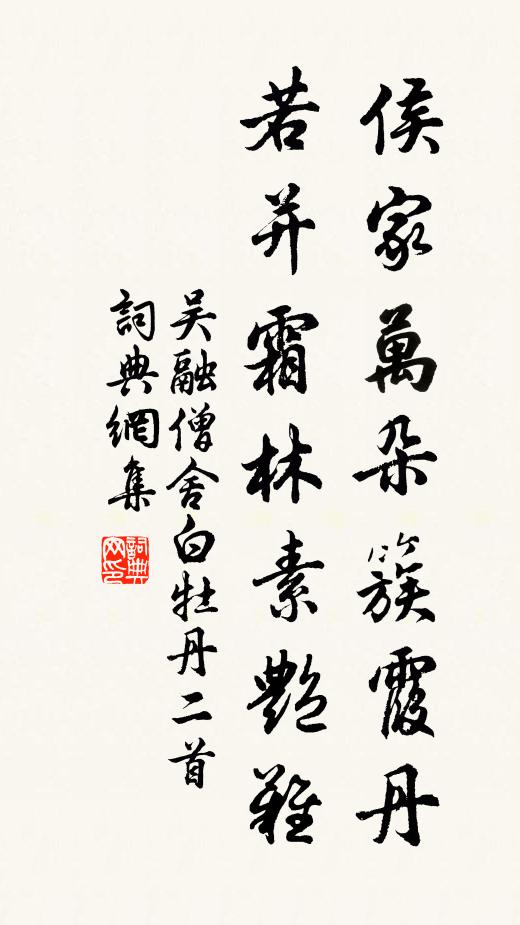 侯家萬朵簇霞丹
若並霜林素艷難
吴融僧舍白牡丹二首
詞典網集
詞典网印